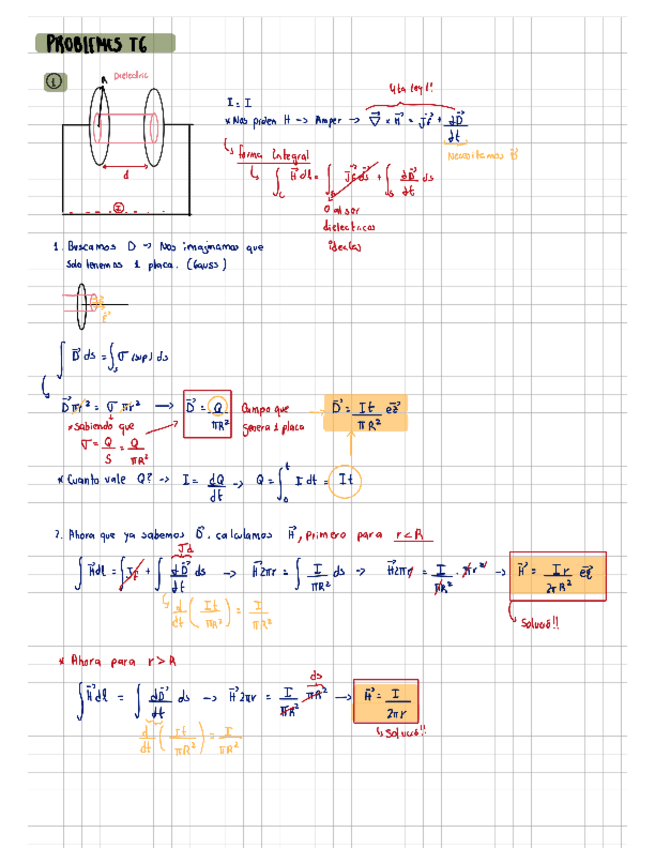 PROBLEMES T6
①
R
Dielectric
d
I
I = I
* Nos piden H -> Amper -> ∇⃗ × H⃗ = J⃗f + dD⃗/dt
4ta ley!!
Necesitamos D⃗
↳ forma integral
↳ ∫_C H⃗ dl = ∫_S J⃗f ds + ∫_S dD⃗/dt ds
0 al ser
dielectricos
ideales
1. Buscamos D -> Nos imaginamos que
solo tenemos 1 placa. (Gauss)
∫ D⃗ ds = ∫_S σ (sup) ds
D⃗ πr² = σ πr² -> D⃗ = Q/πR² Campo que genera 1 placa -> D⃗ = It/πR² ez⃗
* Sabiendo que
σ = Q/S = Q/πR²
* Cuanto vale Q? -> I = dQ/dt -> Q = ∫₀ᵗ I dt = It
2. Ahora que ya sabemos D⃗, calculamos H⃗, primero para r<R
Jd
∫ H⃗dl = ∫ Jf + ∫ dD⃗/dt ds -> H⃗2πr = ∫ I/πR² ds -> H⃗2πr = I/πR² · πr² -> H⃗ = Ir/2πR² eφ⃗
↳ d/dt (It/πR²) = I/πR²
↳ Solució!!
* Ahora para r>R
ds
∫ H⃗dl = ∫ dD⃗/dt ds -> H⃗ 2πr = I/πR² πR² -> H⃗ = I/2πr
d/dt (It/πR²) = I/πR²
↳ Solució!!